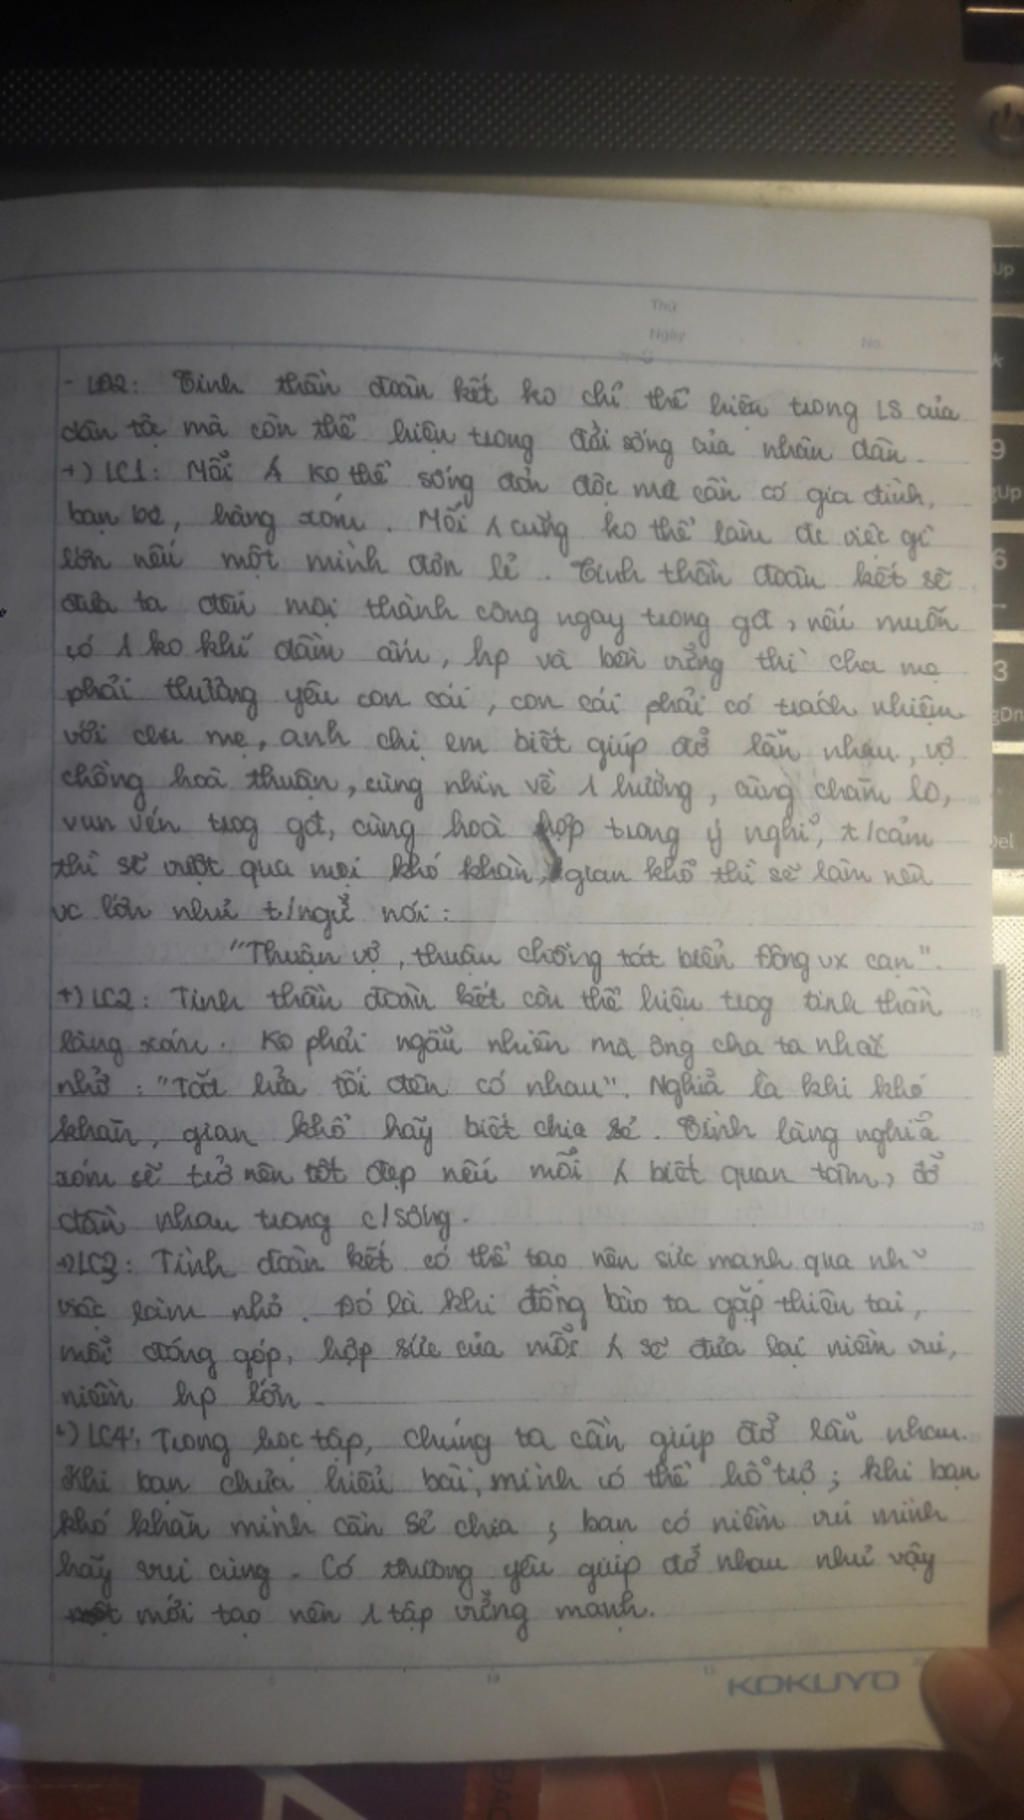 Thứ
Ngày
No.
- LĐ2: Tinh thần đoàn kết ko chỉ thể hiện trong LS của
dân tộc mà còn thể hiện trong đời sống của nhân dân.
+) LC1: Mỗi 1 ko thể sống đơn độc mà cần có gia đình,
bạn bè, hàng xóm. Mỗi 1 cũng ko thể làm đc việc gì
lớn nếu một mình đơn lẻ. Tinh thần đoàn kết sẽ
đưa ta đến mọi thành công ngay trong gđ, nếu muốn
có 1 ko khí đầm ấm, hp và bền vững thì cha mẹ
phải thương yêu con cái, con cái phải có trách nhiệm
với cha mẹ, anh chị em biết giúp đỡ lẫn nhau, vợ
chồng hoà thuận, cùng nhìn về 1 hướng, cùng chăm lo,
vun vén trog gđ, cùng hoà hợp trong ý nghĩ, t/cảm
thì sẽ vượt qua mọi khó khăn, gian khổ thì sẽ làm nên
vc lớn như t/ngữ nói:
"Thuận vợ, thuận chồng tát biển Đông vx cạn".
+) LC2: Tinh thần đoàn kết còn thể hiện trog tinh thần
làng xóm. Ko phải ngẫu nhiên mà ông cha ta nhắc
nhở: "Tắt lửa tối đèn có nhau". Nghĩa là khi khó
khăn, gian khổ hãy biết chia sẻ. Tình làng nghĩa
xóm sẽ trở nên tốt đẹp nếu mỗi 1 biết quan tâm, đỡ
đần nhau trong c/sống.
+) LC3: Tình đoàn kết có thể tạo nên sức mạnh qua nh~
việc làm nhỏ. Đó là khi đồng bào ta gặp thiên tai,
mỗi đóng góp, hợp sức của mỗi 1 sẽ đưa lại niềm vui,
niềm hp lớn.
+) LC4: Trong học tập, chúng ta cần giúp đỡ lẫn nhau.
Khi bạn chưa hiểu bài, mình có thể hỗ trợ; khi bạn
khó khăn mình cần sẻ chia; bạn có niềm vui mình
hãy vui cùng. Có thương yêu giúp đỡ nhau như vậy
mới tạo nên 1 tập vững mạnh.
KOKUYO